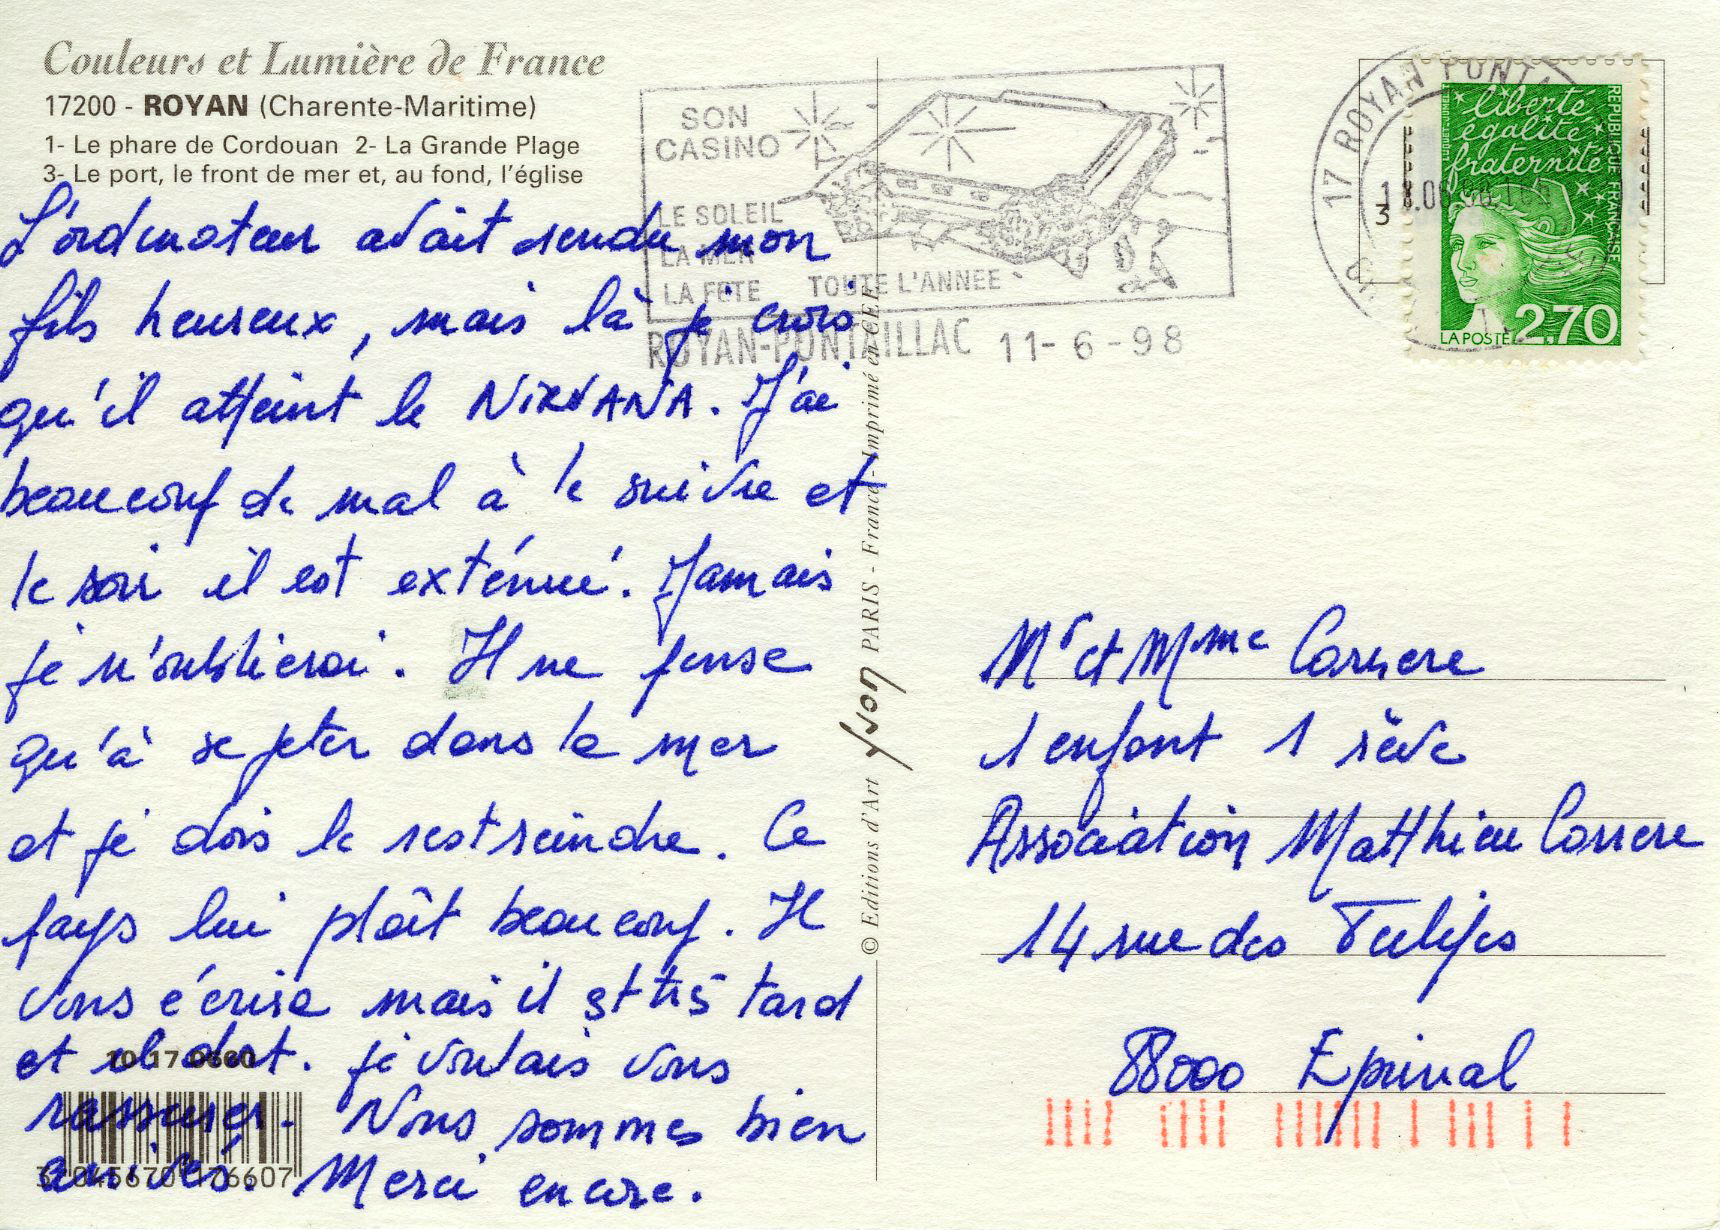 Couleurs et Lumière de France
17200 - ROYAN (Charente-Maritime)
1- Le phare de Cordouan 2- La Grande Plage
3- Le port, le front de mer et, au fond, l'église
L'ordinateur avait rendu mon
fils heureux, mais là je crois
qu'il atteint le NIRVANA. J'ai
beaucoup de mal à le suivre et
le soir il est exténué. Jamais
je n'oublierai. Il ne pense
qu'à se jeter dans la mer
et je dois le restreindre. Ce
pays lui plaît beaucoup. Il
vous écrira mais il est très tard
et il dort. je voulais vous
rassurer. Nous sommes bien
arrivés. Merci encore.
10 17 0660
3 045670 176607
SON
CASINO
LE SOLEIL
LA MER
LA FETE TOUTE L'ANNEE
ROYAN-PONTAILLAC 11-6-98
© Editions d'Art Yvon PARIS - France - Imprimé en CEE
17 ROYAN PONTAILLAC
3
liberté
égalité
fraternité
RÉPUBLIQUE FRANÇAISE
LA POSTE 2,70
Mr et Mme Carrere
1 enfant 1 rêve
Association Matthieu Carrere
14 rue des Tulipes
88000 Epinal